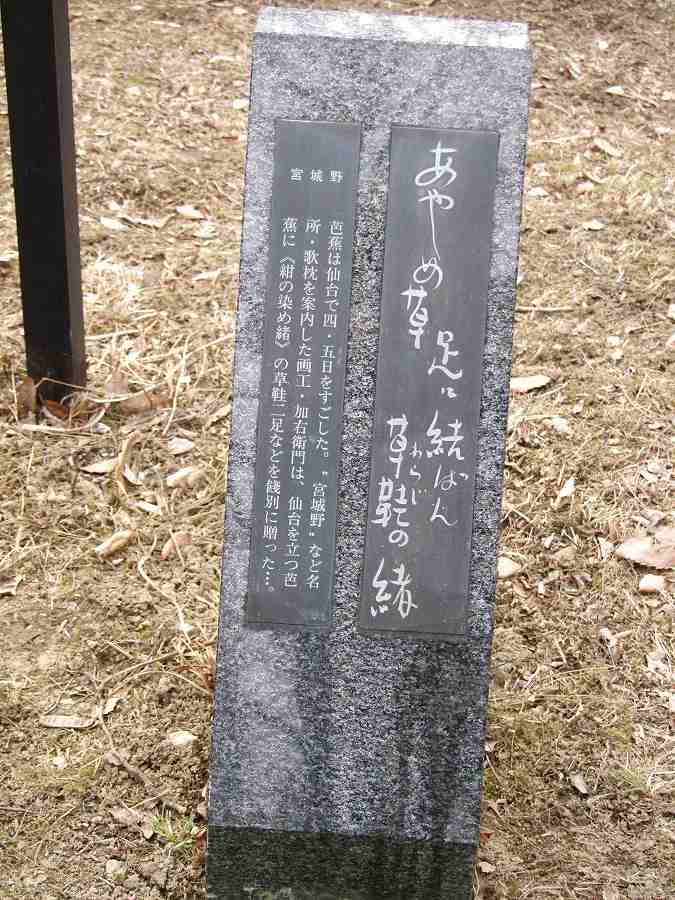 あやめ草
足に結ばん
草鞋の緒
わらじ
宮城野
芭蕉は仙台で四・五日をすごした。〝宮城野〟など名
所・歌枕を案内した画工・加右衛門は、仙台を立つ芭
蕉に《紺の染め緒》の草鞋二足などを餞別に贈った…。